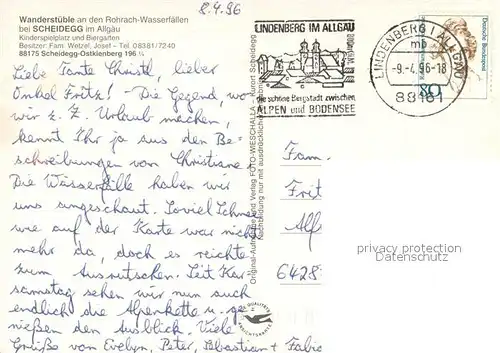 Wanderstüble an den Rohrach-Wasserfällen
bei SCHEIDEGG im Allgäu
Kinderspielplatz und Biergarten
Besitzer: Fam. Wetzel, Josef – Tel. 08381/7240
88175 Scheidegg-Ostkienberg 196 ¼
8.4.96
LINDENBERG IM ALLGÄU
die schöne Bergstadt zwischen
ALPEN und BODENSEE
LINDENBERG I ALLGÄU
mb
-9.-4.96-18
88161
Deutsche Bundespost
80
Liebe Tante Christl, lieber
Onkel Fritz! – Die Gegend, wo
wir z. Z. Urlaub machen,
kennt Ihr ja aus den Be-
schreibungen von Christiane.
Die Wasserfälle haben wir
uns angeschaut. Soviel Schnee
wie auf der Karte war nicht
mehr da, doch es reichte
zum Ausrutschen. Seit Kar-
samstag sehen wir nun auch
endlich die Alpenkette u. ge-
nießen den Ausblick. Viele
Grüße von Evelyn, Peter, Sebastian + Fabio
Original-Aufnahme und Verlag FOTO-WIESCHALLA
Nachbildung nur mit ausdrücklicher
Fam.
Frit
Alf
6428
privacy protection
Datenschutz